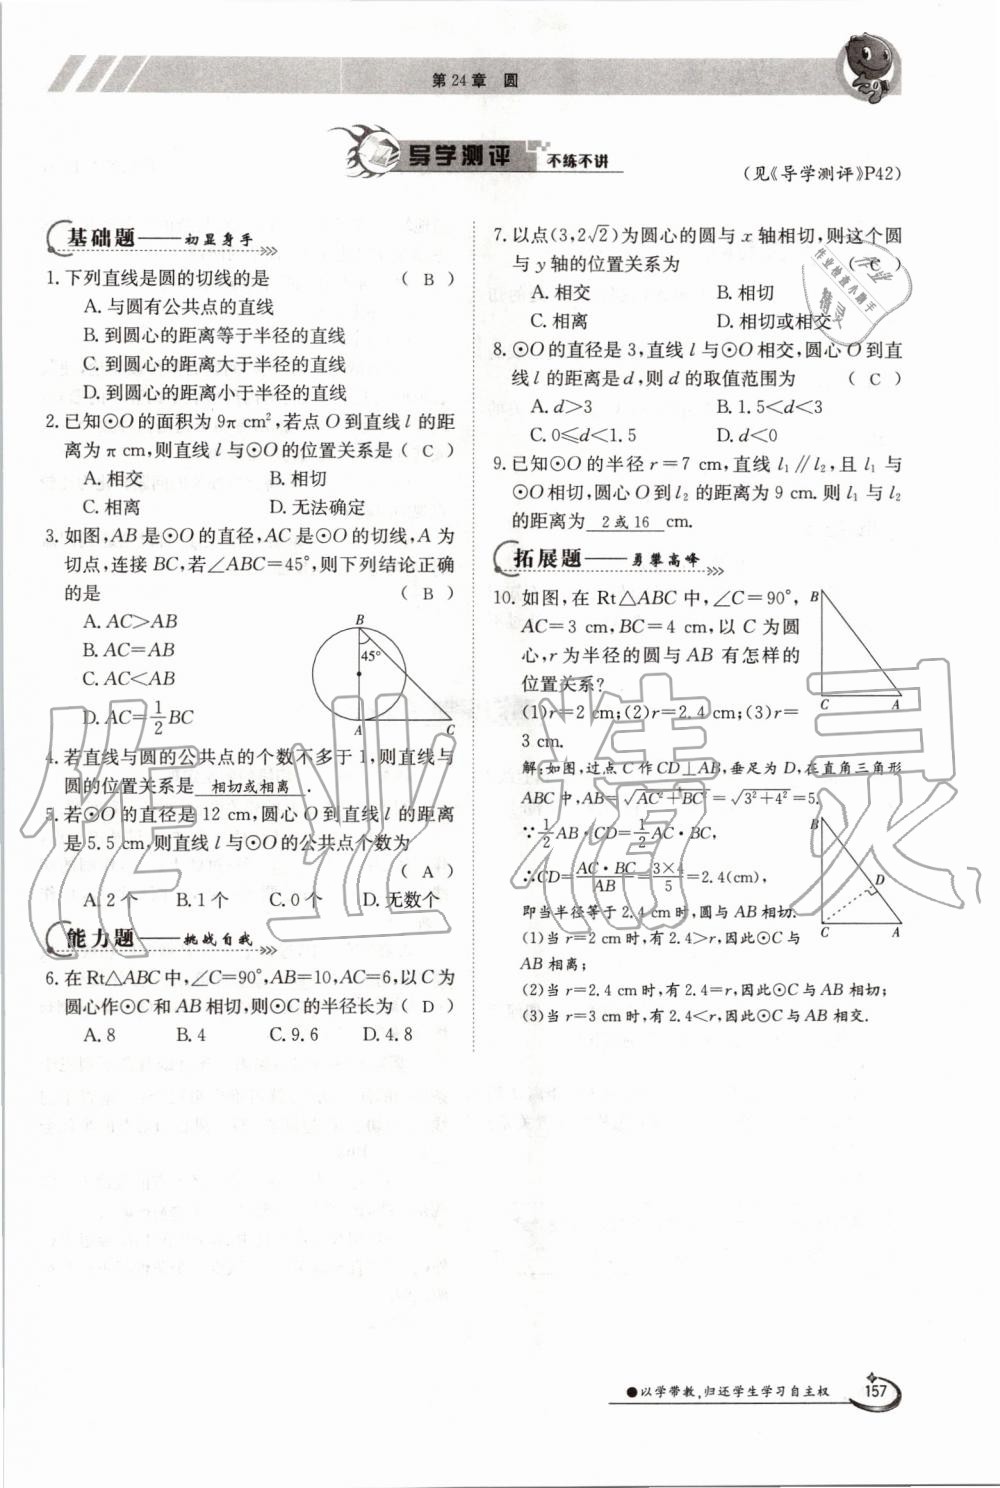 第24章 圆
导学测评 不练不讲
(见《导学测评》P42)
基础题——初显身手
1. 下列直线是圆的切线的是 ( B )
A. 与圆有公共点的直线
B. 到圆心的距离等于半径的直线
C. 到圆心的距离大于半径的直线
D. 到圆心的距离小于半径的直线
2. 已知⊙O的面积为9π cm²,若点O到直线l的距
离为π cm,则直线l与⊙O的位置关系是( C )
A. 相交 B. 相切
C. 相离 D. 无法确定
3. 如图,AB是⊙O的直径,AC是⊙O的切线,A为
切点,连接BC,若∠ABC=45°,则下列结论正确
的是 ( B )
A. AC>AB
B. AC=AB
C. AC<AB
D. AC=1/2BC
B
45°
A C
4. 若直线与圆的公共点的个数不多于1,则直线与
圆的位置关系是 相切或相离 .
5. 若⊙O的直径是12 cm,圆心O到直线l的距离
是5.5 cm,则直线l与⊙O的公共点个数为
( A )
A. 2个 B. 1个 C. 0个 D. 无数个
能力题——挑战自我
6. 在Rt△ABC中,∠C=90°,AB=10,AC=6,以C为
圆心作⊙C和AB相切,则⊙C的半径长为( D )
A. 8 B. 4 C. 9.6 D. 4.8
7. 以点(3,2√2)为圆心的圆与x轴相切,则这个圆
与y轴的位置关系为 ( C )
A. 相交 B. 相切
C. 相离 D. 相切或相交
8. ⊙O的直径是3,直线l与⊙O相交,圆心O到直
线l的距离是d,则d的取值范围为 ( C )
A. d>3 B. 1.5<d<3
C. 0≤d<1.5 D. d<0
9. 已知⊙O的半径r=7 cm,直线l₁∥l₂,且l₁与
⊙O相切,圆心O到l₂的距离为9 cm. 则l₁与l₂
的距离为 2或16 cm.
拓展题——勇攀高峰
10. 如图,在Rt△ABC中,∠C=90°,
AC=3 cm,BC=4 cm,以C为圆
心,r为半径的圆与AB有怎样的
位置关系?
(1)r=2 cm;(2)r=2.4 cm;(3)r=
3 cm.
B
C A
解:如图,过点C作CD⊥AB,垂足为D,在直角三角形
ABC中,AB=√(AC²+BC²)=√(3²+4²)=5.
∵1/2AB·CD=1/2AC·BC,
∴CD=AC·BC/AB=3×4/5=2.4(cm),
即当半径等于2.4 cm时,圆与AB相切.
(1)当r=2 cm时,有2.4>r,因此⊙C与
AB相离;
(2)当r=2.4 cm时,有2.4=r,因此⊙C与AB相切;
(3)当r=3 cm时,有2.4<r,因此⊙C与AB相交.
B
D
C A
作业精灵
作业检查小助手
精灵
●以学带教,归还学生学习自主权
157